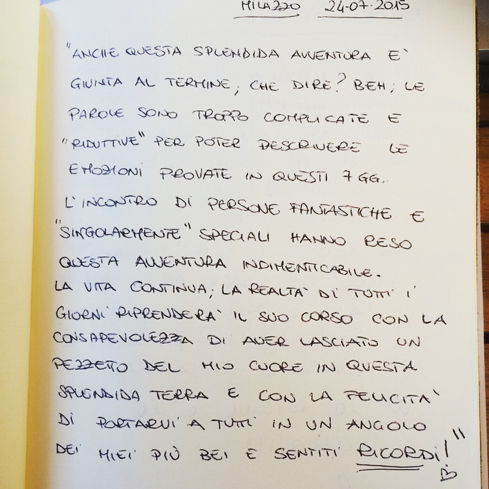 MILAZZO 24-07-2015
"ANCHE QUESTA SPLENDIDA AVVENTURA E'
GIUNTA AL TERMINE, CHE DIRE? BEH; LE
PAROLE SONO TROPPO COMPLICATE E
"RIDUTTIVE" PER POTER DESCRIVERE LE
EMOZIONI PROVATE IN QUESTI 7 GG.
L'INCONTRO DI PERSONE FANTASTICHE E
"SINGOLARMENTE" SPECIALI HANNO RESO
QUESTA AVVENTURA INDIMENTICABILE.
LA VITA CONTINUA; LA REALTA' DI TUTTI I
GIORNI RIPRENDERA' IL SUO CORSO CON LA
CONSAPEVOLEZZA DI AVER LASCIATO UN
PEZZETO DEL MIO CUORE IN QUESTA
SPLENDIDA TERRA E CON LA FELICITA'
DI PORTARVI A TUTTI IN UN ANGOLO
DEI MIEI PIÙ BEI E SENTITI RICORDI!"